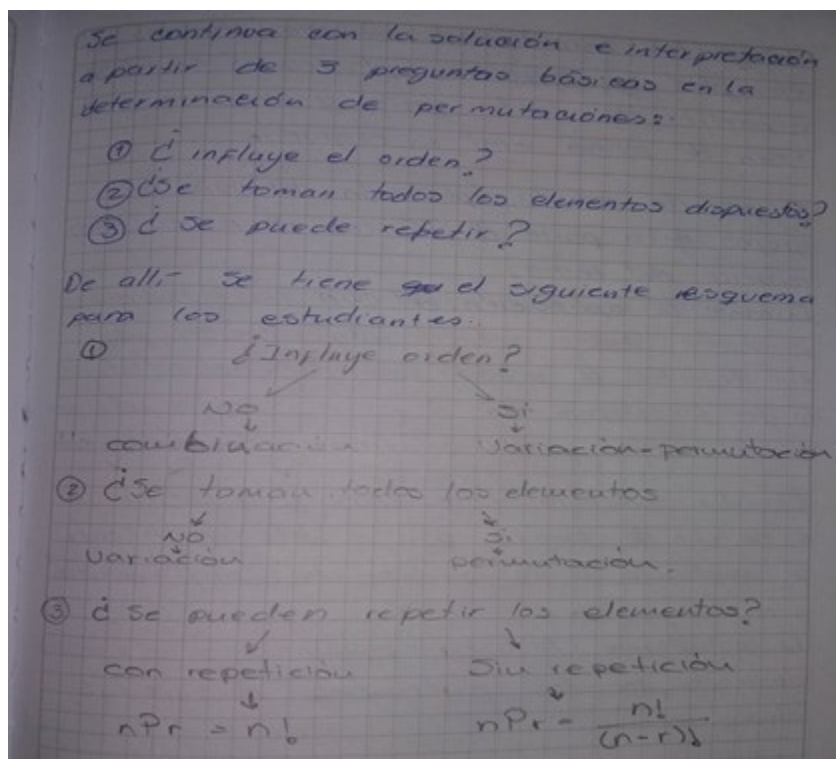 Se continua con la solución e interpretación
a partir de 3 preguntas básicas en la
determinación de permutaciónes:
① ¿influye el orden?
② ¿Se toman todos los elementos dispuestos?
③ ¿Se puede repetir?
De alli se tiene el siguiente esquema
para los estudiantes.
① ¿Influye orden?
NO Si
combinación Variación-permutación
② ¿Se toman todos los elementos
NO Si
Variación permutación.
③ ¿Se pueden repetir los elementos?
con repetición Sin repetición
nPr = n! nPr = n!/(n-r)!